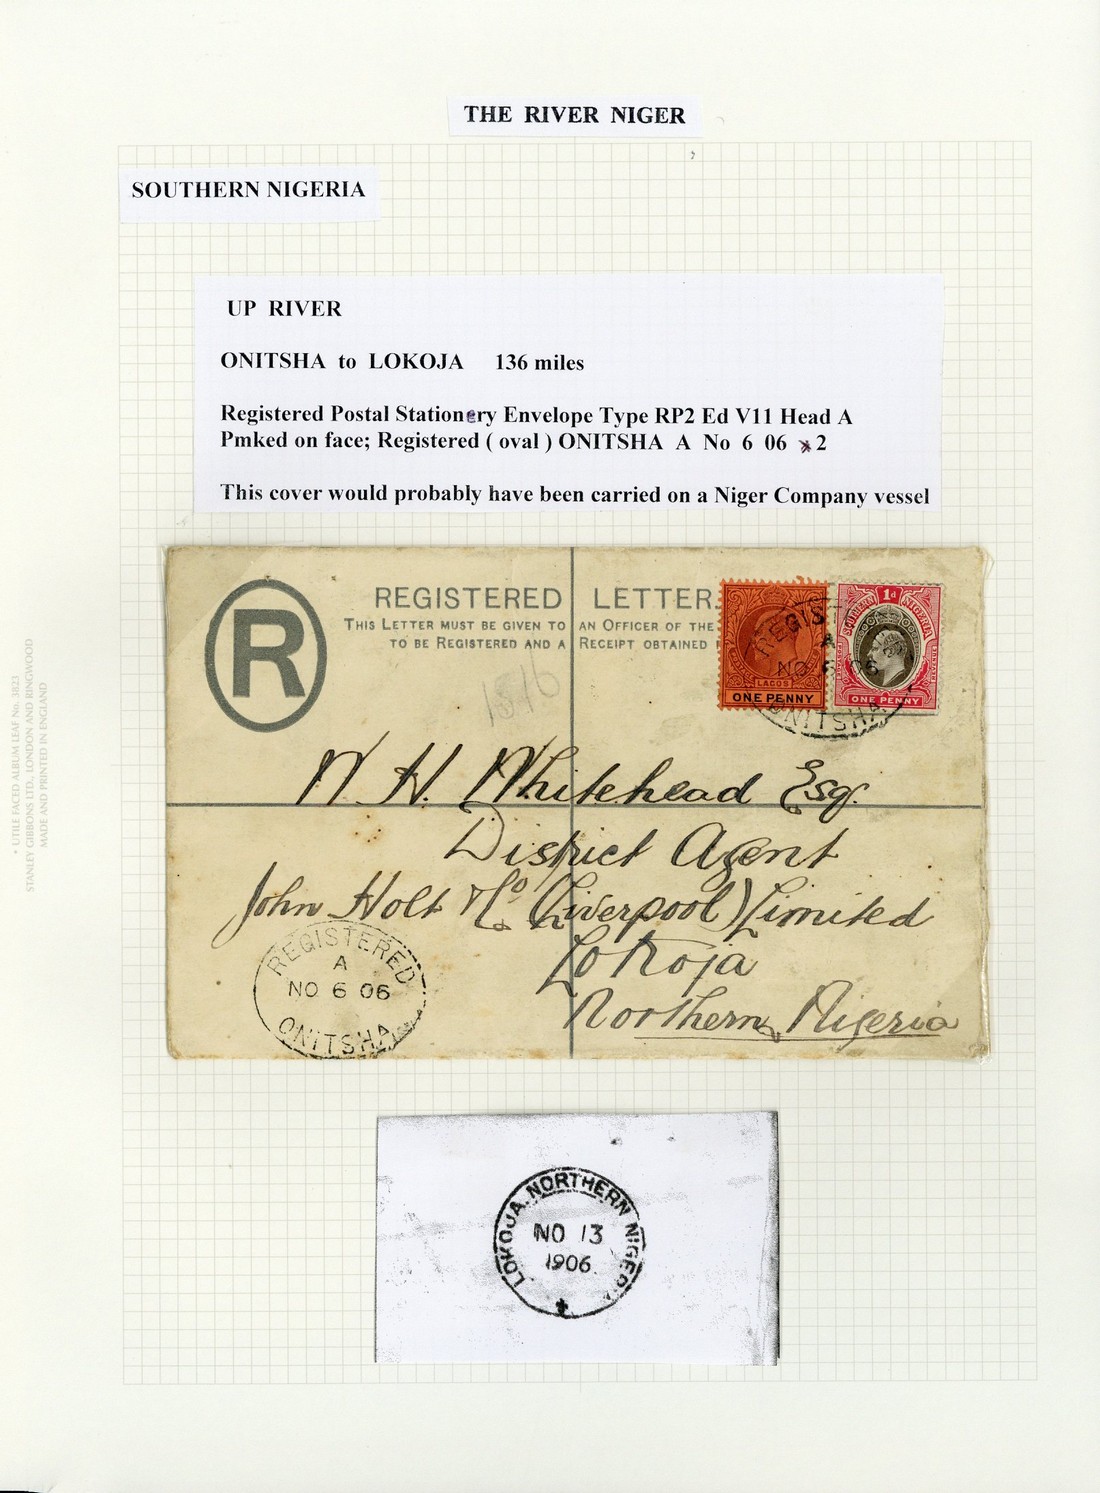 THE RIVER NIGER
SOUTHERN NIGERIA
UP RIVER
ONITSHA to LOKOJA 136 miles
Registered Postal Stationery Envelope Type RP2 Ed V11 Head A
Pmked on face; Registered ( oval ) ONITSHA A No 6 06 x 2
This cover would probably have been carried on a Niger Company vessel
R
REGISTERED LETTER.
THIS LETTER MUST BE GIVEN TO AN OFFICER OF THE
TO BE REGISTERED AND A RECEIPT OBTAINED
LAGOS
ONE PENNY
1d
SOUTHERN NIGERIA
POSTAGE REVENUE
ONE PENNY
REGIS
A
NO 6 06
ONITSHA
W. H. Whitehead Esq.
District Agent
John Holt & Co (Liverpool) Limited
Lokoja
Northern Nigeria
REGISTERED
A
NO 6 06
ONITSHA
LOKOJA. NORTHERN NIGERIA
NO 13
1906
• UTILE FACED ALBUM LEAF No. 3823
STANLEY GIBBONS LTD., LONDON AND RINGWOOD
MADE AND PRINTED IN ENGLAND